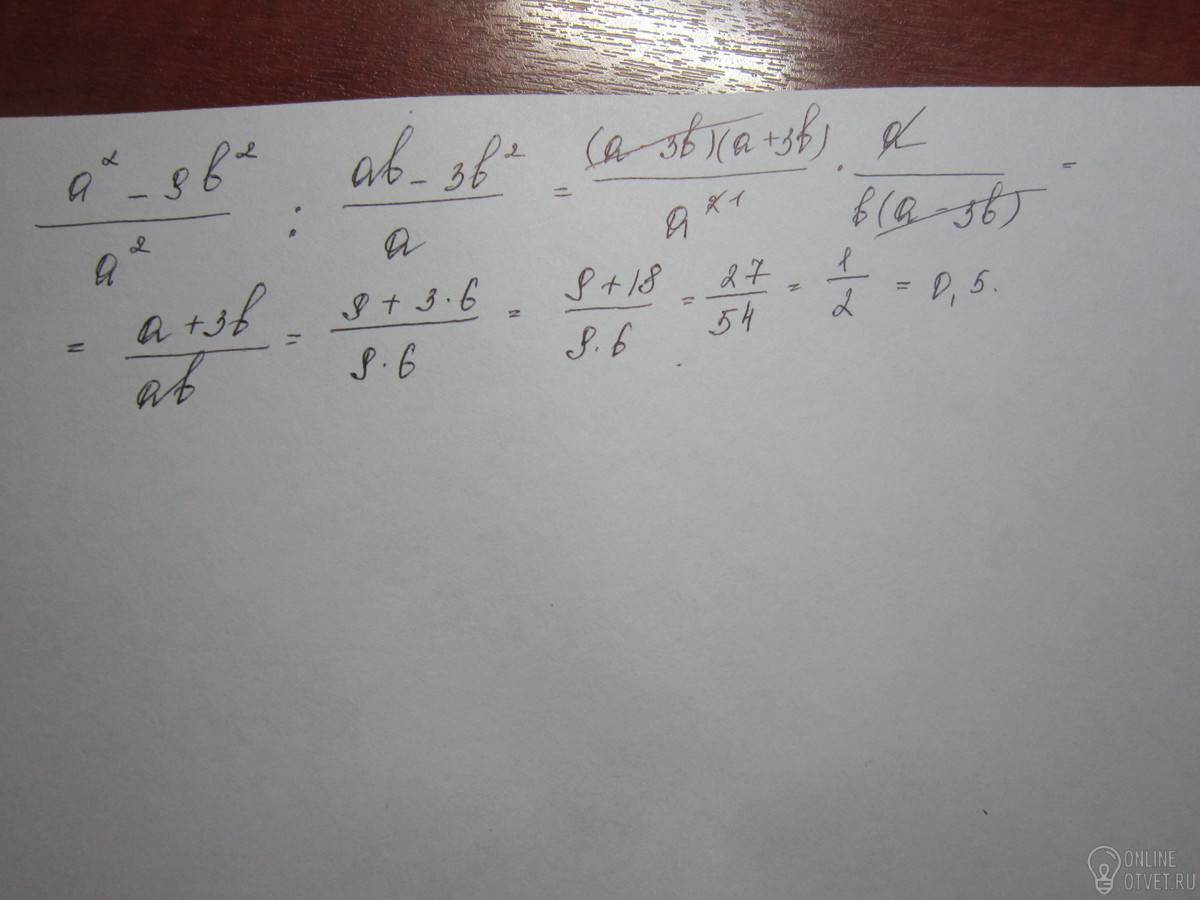 (a² - 9b²)/a² : (ab - 3b²)/a = ((a - 3b)(a + 3b))/a²¹ · a/(b(a - 3b)) =
= (a + 3b)/(ab) = (9 + 3·6)/(9·6) = (9 + 18)/(9·6) = 27/54 = 1/2 = 0,5.
ONLINE
OTVET.RU